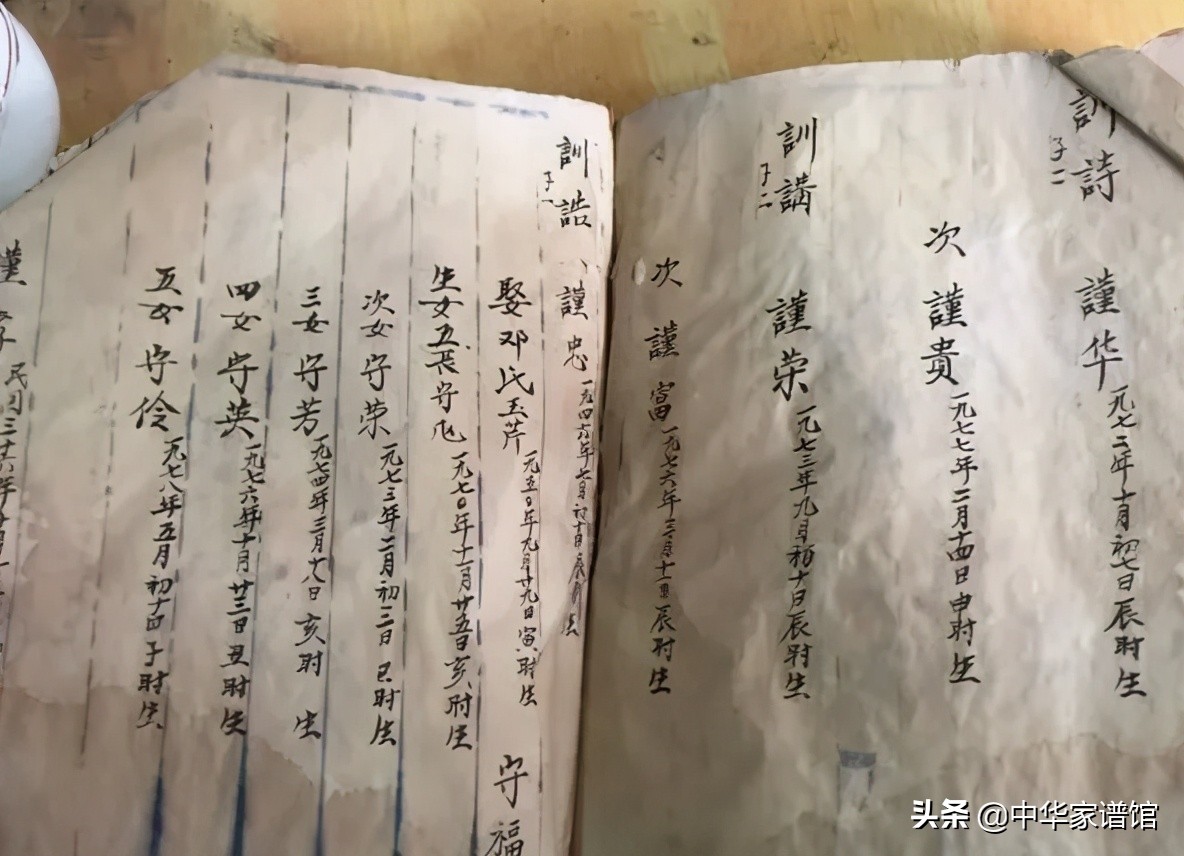 訓詩
子二
謹华 一九七二年十月初七日辰时生
次 謹貴 一九七七年二月十四日申时生
訓講
子二
謹荣 一九七三年九月初十日辰时生
次 謹富 一九七六年三月十一日辰时生
訓誥
子一
謹忠 一九四六年七月初十日辰时生
娶邓氏玉芹 一九五0年九月廿九日寅时生 守福
生女五長守 一九七0年十二月廿五日亥时生
次女守荣 一九七三年二月初三日巳时生
三女守芳 一九七四年三月十八日亥时生
四女守英 一九七六年十月廿三日丑时生
五女守伶 一九七八年五月初十四子时生
謹 民国三十六年
头条 @中华家谱馆